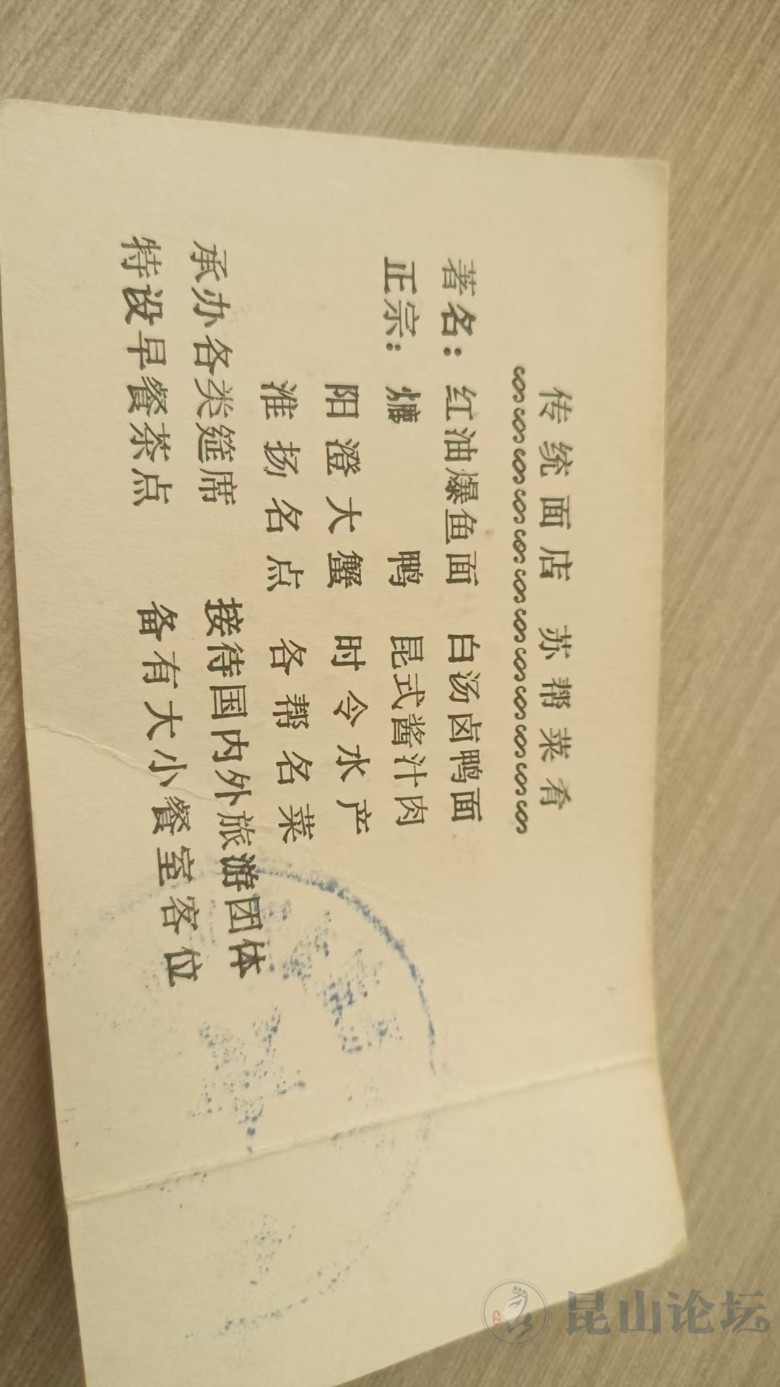 传统面店 苏帮菜肴
著名：红油爆鱼面 白汤卤鸭面
正宗：爊鸭 昆式酱汁肉
阳澄大蟹 时令水产
淮扬名点 各帮名菜
承办各类筵席 接待国内外旅游团体
特设早餐茶点 备有大小餐室客位
昆山论坛